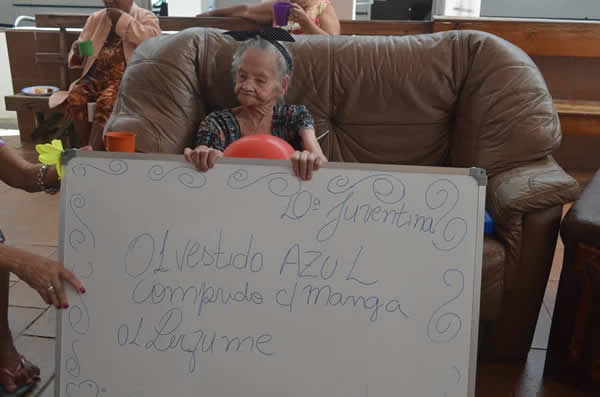 Dª Juventina
01 vestido AZUL
Comprido c/ manga
01 Perfume